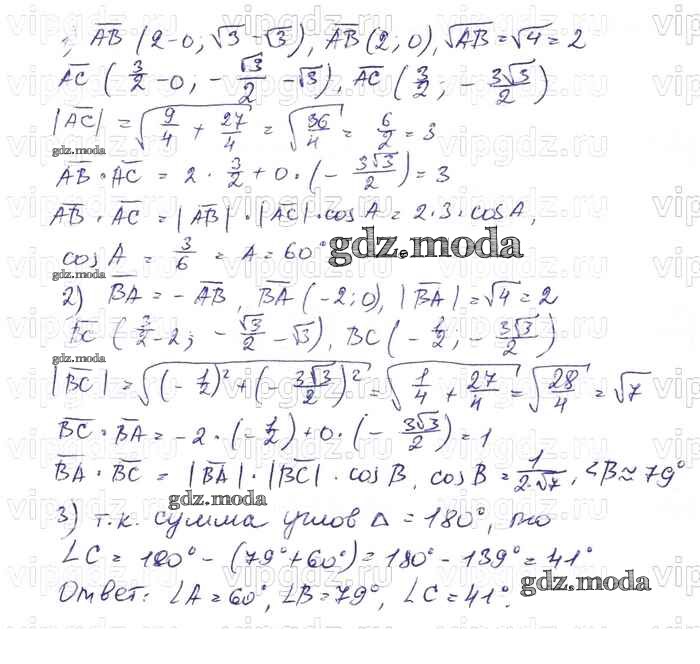 1) AB (2-0; √3 -√3), AB (2; 0), √AB = √4 = 2
AC (3/2 -0; -√3/2 -√3), AC (3/2; -3√3/2)
|AC| = √(9/4 + 27/4) = √(36/4) = 6/2 = 3
gdz.moda
AB · AC = 2 · 3/2 + 0 · (- 3√3/2) = 3
AB · AC = |AB| · |AC| · cos A = 2 · 3 · cos A,
cos A = 3/6 = A = 60°
gdz.moda
2) BA = - AB, BA (-2; 0), |BA| = √4 = 2
BC (3/2 -2; -√3/2 -√3), BC (-1/2; -3√3/2)
gdz.moda
|BC| = √((-1/2)² + (-3√3/2)²) = √(1/4 + 27/4) = √(28/4) = √7
BC · BA = -2 · (-1/2) + 0 · (- 3√3/2) = 1
BA · BC = |BA| · |BC| · cos B, cos B = 1/(2·√7), ∠B ≈ 79°
gdz.moda
3) т.к. сумма углов Δ = 180°, то
∠C = 180° - (79° + 60°) = 180° - 139° = 41°
gdz.moda
Ответ: ∠A = 60°, ∠B = 79°, ∠C = 41°.
gdz.moda
vipgdz.ru